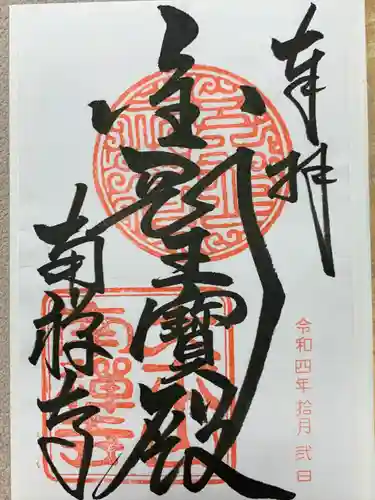 奉拝
金剛王寶殿
南禅寺
令和四年拾月弐日